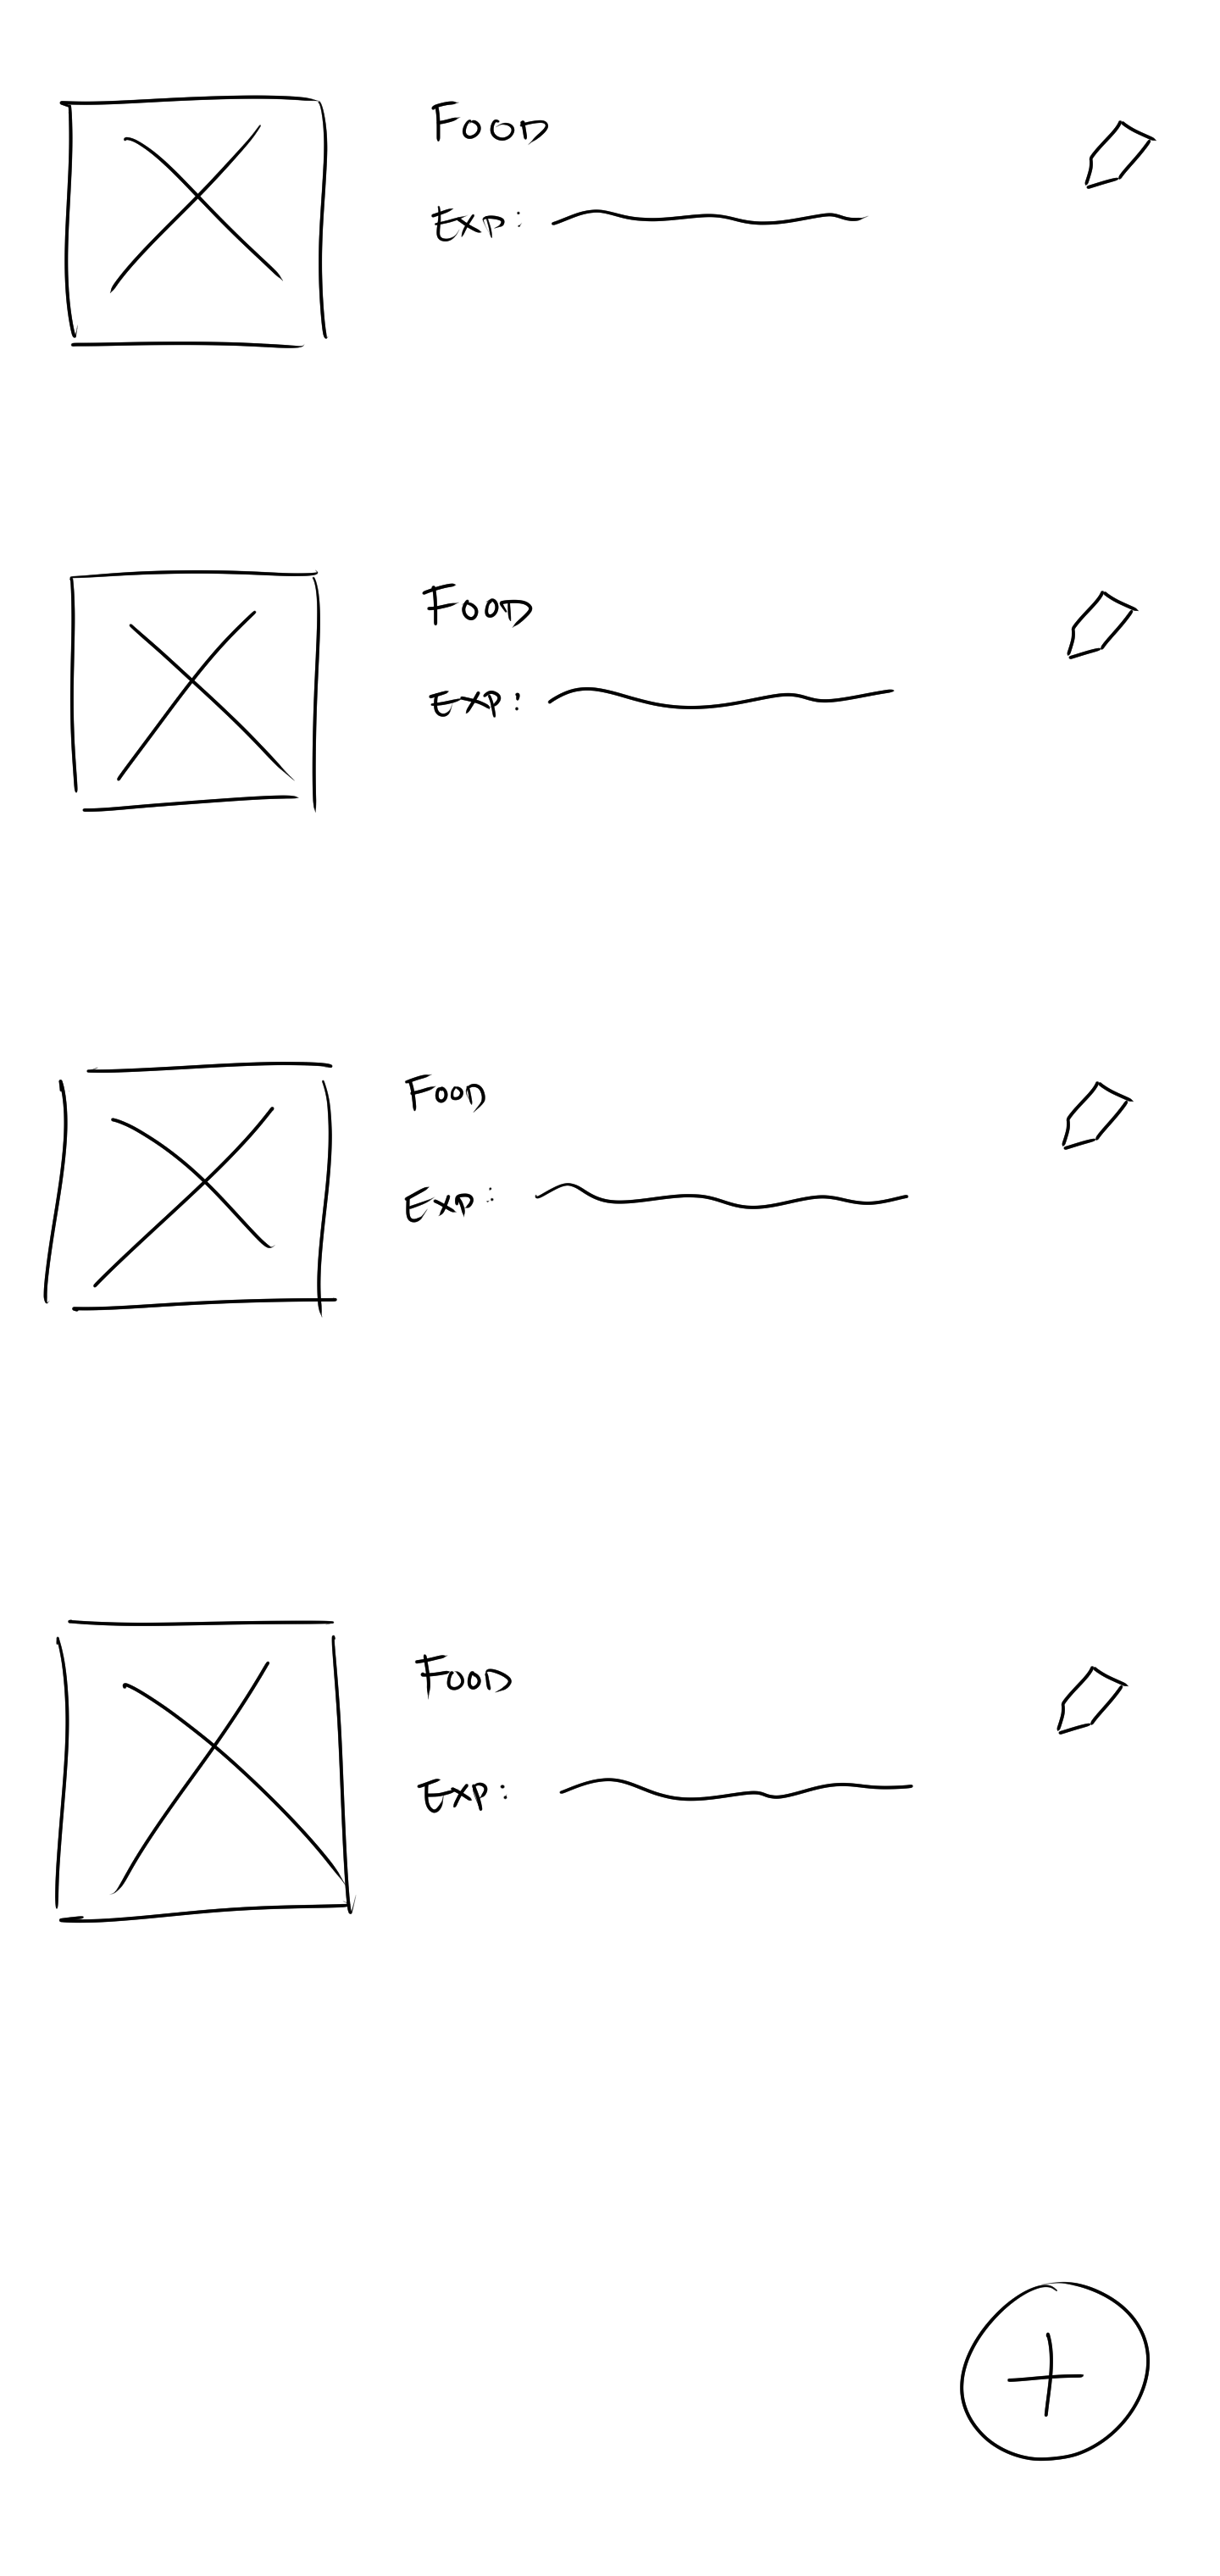 Food
Exp:
Food
Exp:
Food
Exp:
Food
Exp: